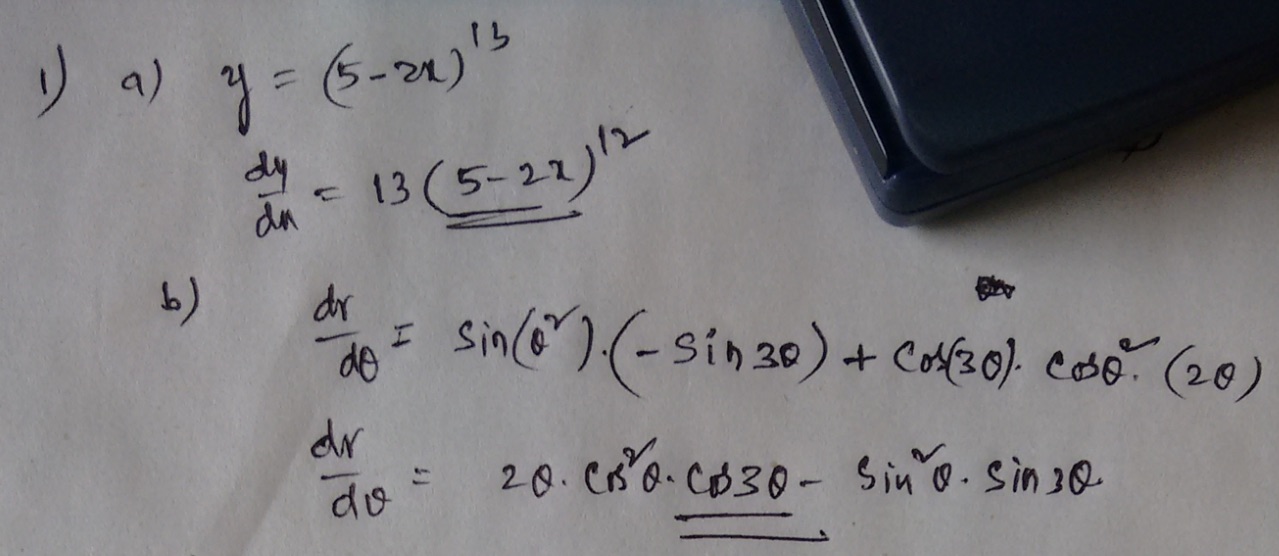 1) a) y = (5-2x)¹³
dy/dx = 13(5-2x)¹²
b) dr/dθ = sin(θ²).(-sin3θ) + cos(3θ). cosθ². (2θ)
dr/dθ = 2θ. cos²θ. cos3θ - sin²θ. sin3θ